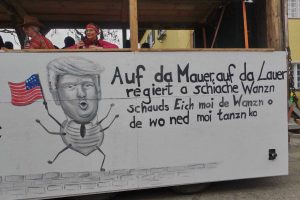 Auf da Mauer, auf da Lauer
regiert a schiache Wanzn
schauds Eich moi de Wanzn o
de wo ned moi tanzn ko